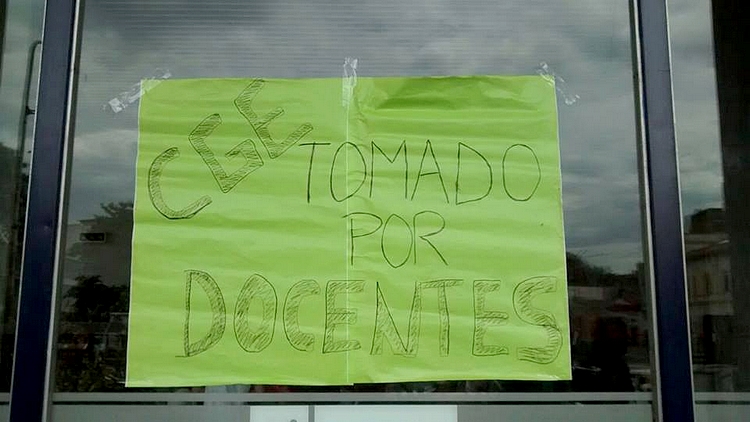 CGE TOMADO
POR
DOCENTES